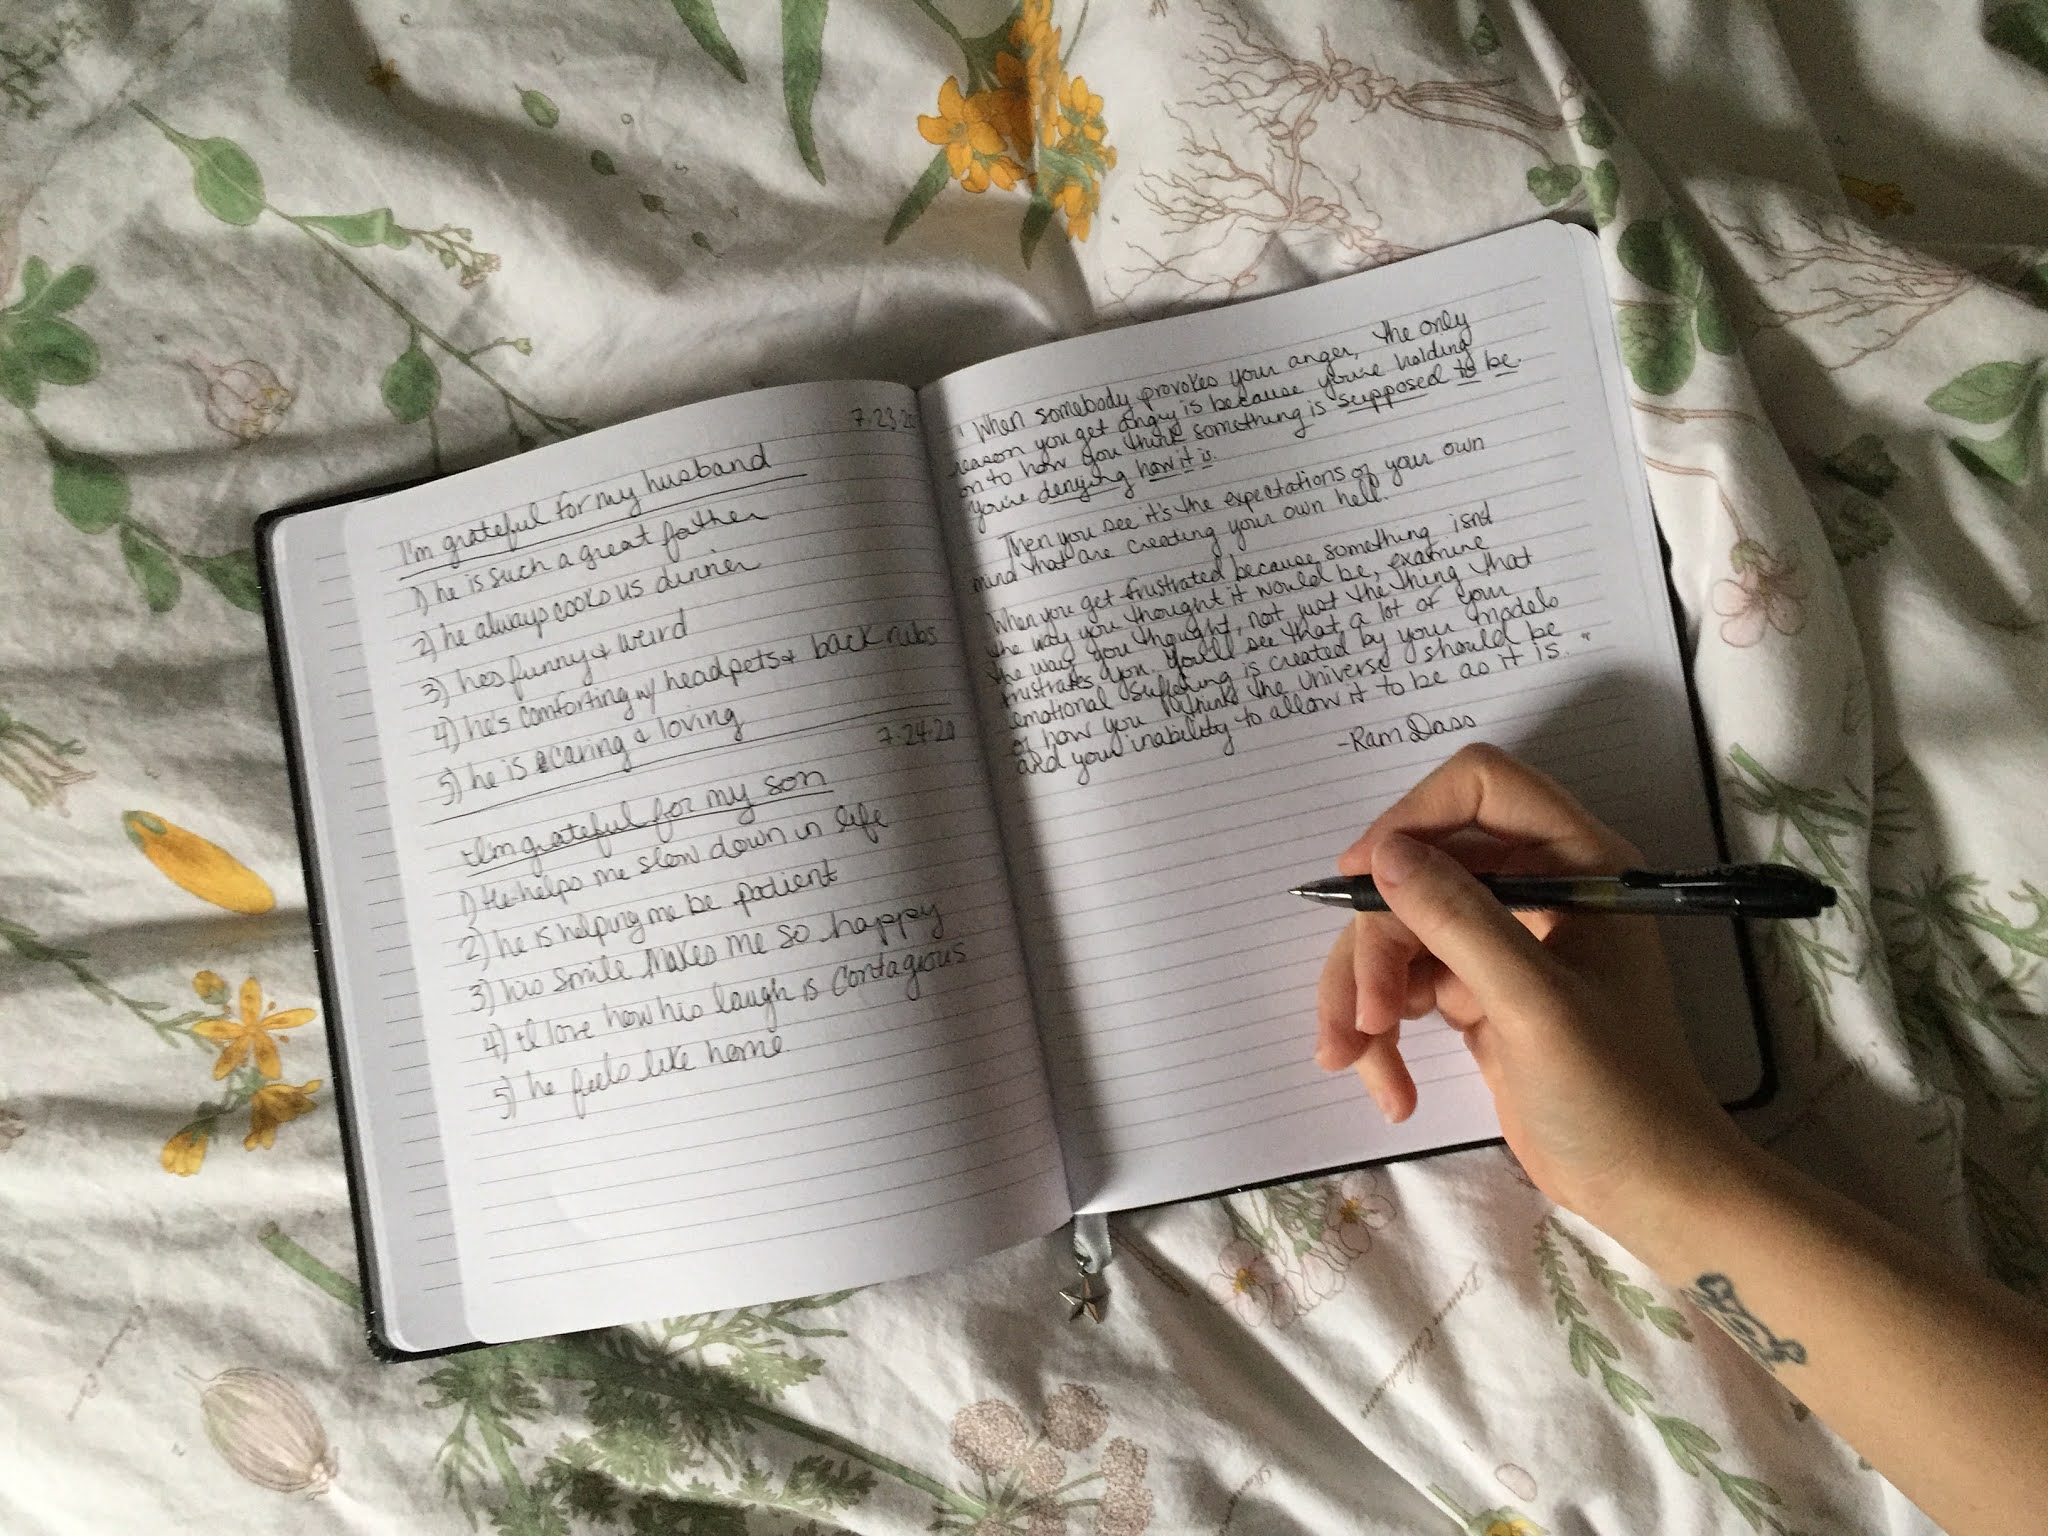 7.23.20
I'm grateful for my husband
1) he is such a great father
2) he always cooks us dinner
3) hes funny & weird
4) he's comforting w/ headpets & back rubs
5) he is caring & loving
7.24.20
I'm grateful for my son
1) He helps me slow down in life
2) he is helping me be patient
3) his smile makes me so happy
4) I love how his laugh is contagious
5) he feels like home
"When somebody provokes your anger, the only
reason you get angry is because you're holding
on to how you think something is supposed to be.
You're denying how it is.
Then you see it's the expectations of your own
mind that are creating your own hell.
When you get frustrated because something isnt
the way you thought it would be, examine
the way you thought, not just the thing that
frustrates you. You'll see that a lot of your
emotional suffering is created by your models
of how you think the universe should be
and your inability to allow it to be as it is."
-Ram Dass